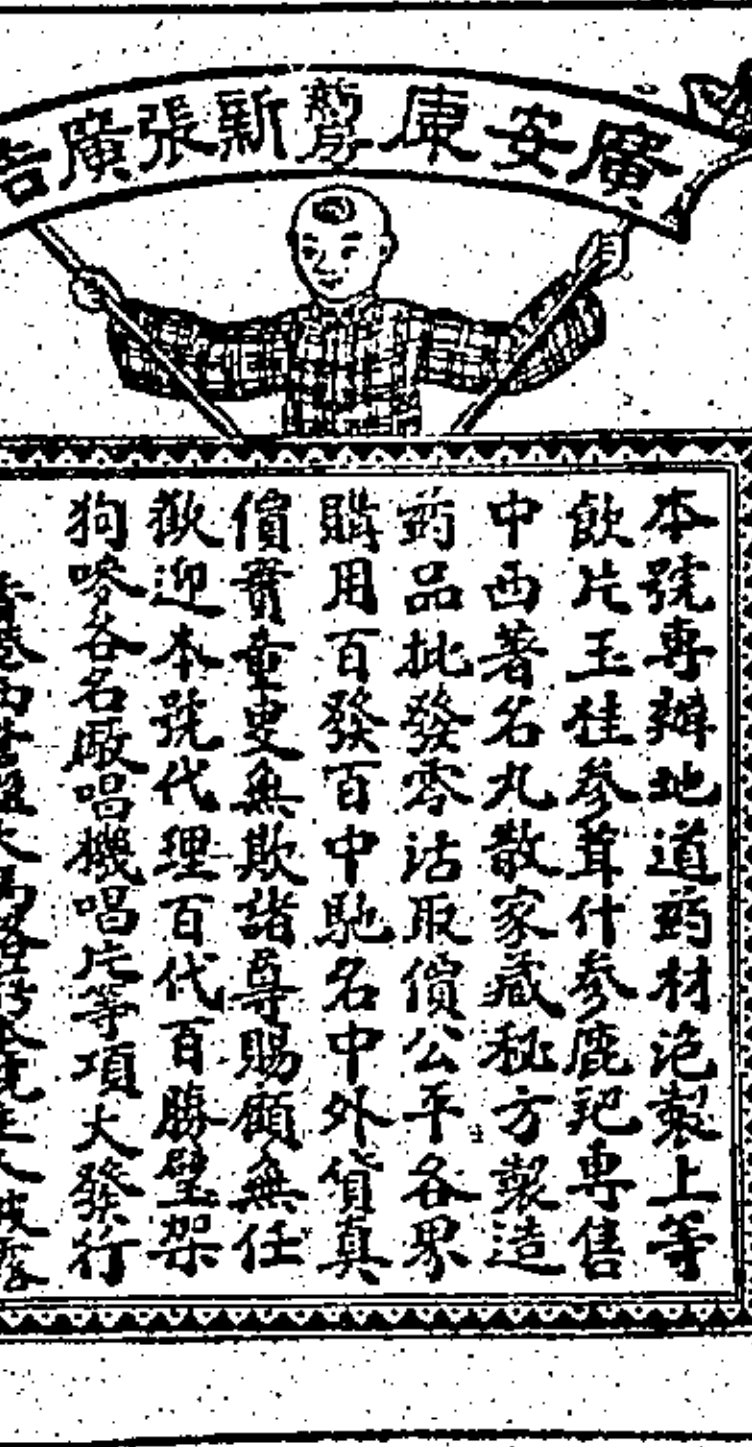 廣安康葯房新張廣告
本號專辦地道葯材泡製上等
飲片玉桂參茸什參鹿䏰專售
中西著名丸散家藏秘方製造
葯品批發零沽取價公平各界
購用百發百中馳名中外貨真
價實童叟無欺諸尊賜顧無任
歡迎本號代理百代百勝璧架
狗嘜各名厰唱機唱片等項大發行
香港